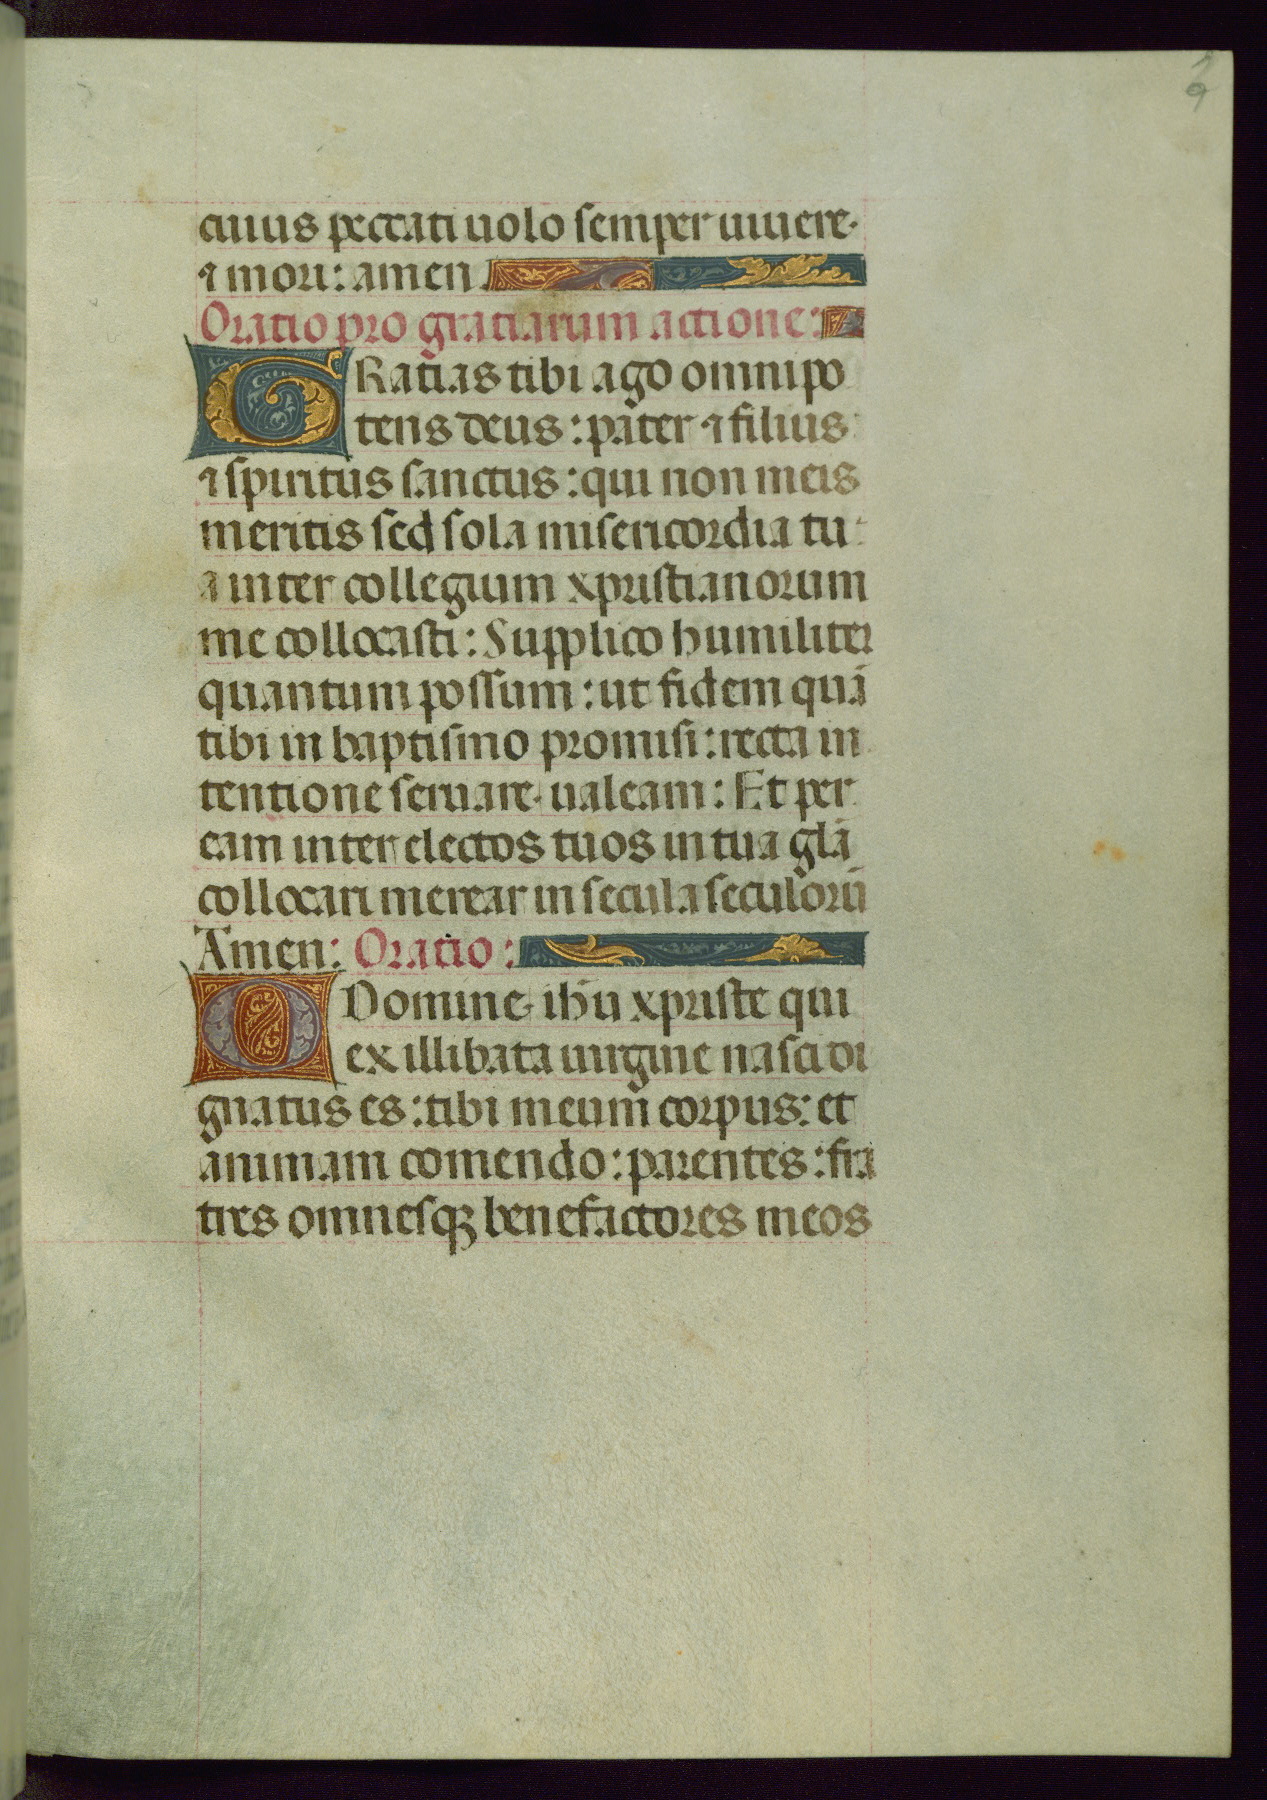 cuius peccati uolo semper uiuere.
⁊ mori: amen.
Oratio pro gratiarum actione:
GRatias tibi ago omnipo
tens deus: pater ⁊ filius
⁊ spiritus sanctus: qui non meis
meritis sed sola misericordia tu
a inter collegium xpristianorum
me collocasti: Supplico humiliter
quantum possum: ut fidem quā
tibi in baptismo promisi: recta in
tentione seruare ualeam: Et per
eam inter electos tuos in tua gl̄a
collocari merear in secula seculorū
Amen: Oratio:
O Domine ihū xpriste qui
ex illibata uirgine nasci di
gnatus es: tibi meum corpus: et
animam comendo: parentes: fra
tres omnesqꝫ benefactores meos